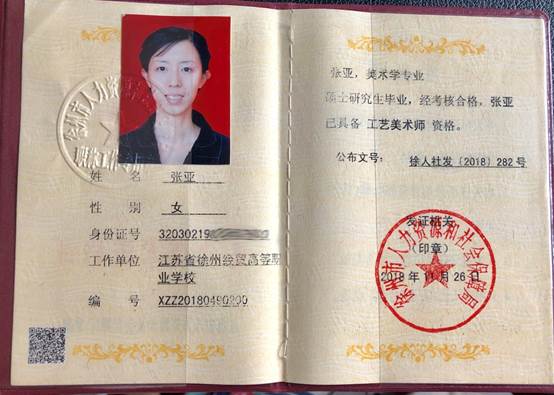 徐州市人力资源
姓 名 张亚
性 别 女
身份证号 32030219
工作单位 江苏省徐州经贸高等职
业学校
编 号 XZZ20180490200
张亚，美术学专业
硕士研究生毕业，经考核合格，张亚
已具备 工艺美术师 资格。
公布文号： 徐人社发〔2018〕282号
发证机关
（印章）
2018 年 11 月 26 日
徐州市人力资源和社会保障局